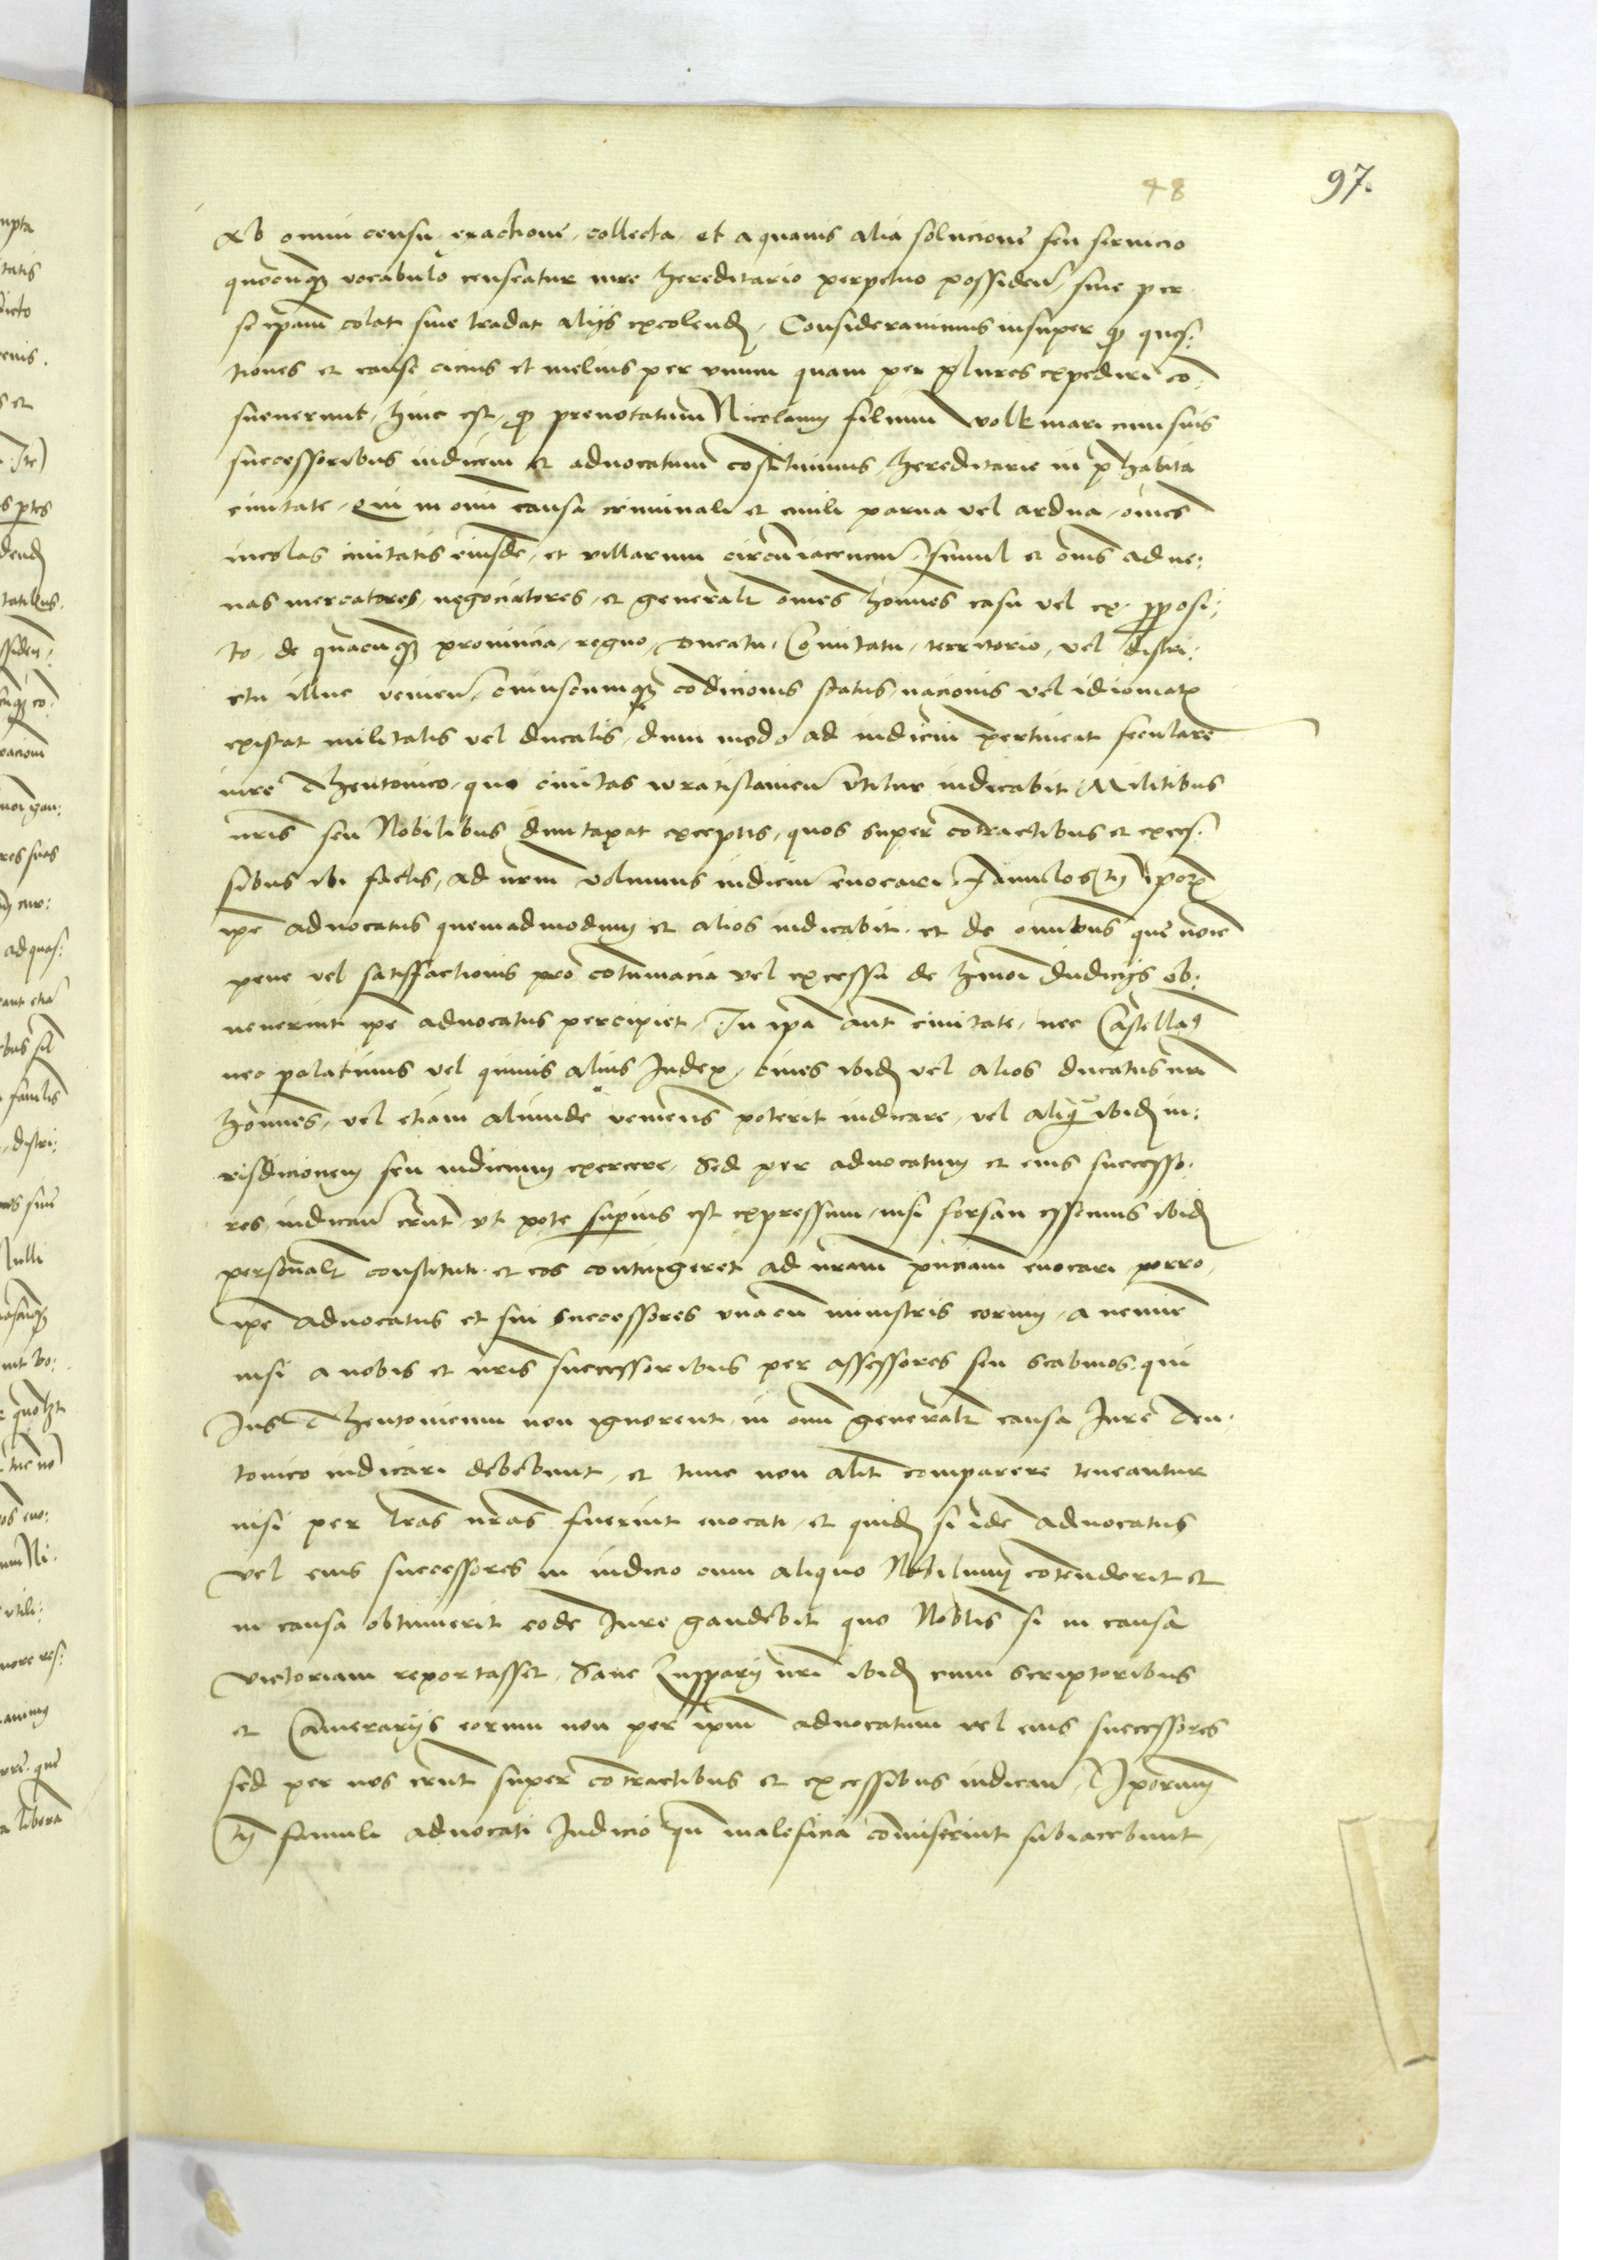 48
97.
Ab omni censu exactione, collecta, et a quauis alia solucione seu seruicio
quocunq3 vocabulo censeatur iure hereditario perpetuo possideñ siue per
se ipam̄ colat siue tradat alijs excolend, Considerauimus insuper qͦ ques:
tiones et cause cicius et melius per vnum quam per plures expediri cō
sueuerunt, hinc est, qͦ prenotatum Nicolaum filium volkmari cum suis
successoribus iudicem et aduocatum cōstituimus hereditarie in p̄habita
ciuitate, Qui in om̄i causa criminali et ciuili parua vel ardua, om̄es
incolas ciuitatis eiusdē, et villarum circūiacenciū, simul et om̄s adue:
nas mercatores, negociatores, et generalr̄ om̄es hōmines casu vel ex pposi:
to, de quacunq3 prouincia, regno, Ducatu, Comitatu, territorio, vel distri:
ctu illuc venieñ, cuiuscumq3 cōdicionis status, nacionis vel idiomatis
existat militalis vel ducalis, dum modo ad iudiciū pertineat secularē
iure Thewtonico, quo ciuitas wratislauieñ vtitur iudicabit, Militibus
nr̄is seu Nobilibus dumtaxat exceptis, quos super cōtractibus et exces:
sibus ibi factis, ad nr̄m volumus iudiciū euocari, Famulos tn̄ ipor̄
ip̄e aduocatus quemadmodum et alios iudicabit, et de om̄ibus que noīe
pene vel satisfactionis pro cōtumacia vel excessu de hmōi Iudicijs ob:
uenerint ip̄e aduocatus percipiet, In ip̄a aut̄ ciuitate, nec Castella9
nec palatinus vel quiuis alius Iudex, ciues ibid vel alios ducatus nr̄i
hōmines, vel etiam aliunde veniens poterit iudicare, vel aliq̄ ibid iu:
risdicionem seu iudicium exercere, Sed per aduocatum et eius successo:
res, iudicañ erunt, vt pote superius est expressum, nisi forsan essemus ibid
personalr̄ constituti, et eos contingeret ad nr̄am pn̄ciam euocari porro,
ip̄e aduocatus et sui successores vnacū ministris eorum, a nemīe
nisi a nobis et nr̄is successoribus per assessores seu scabinos, qui
Ius Thewtonicum non ignorent, in om̄i generalr̄ causa Iure Teu:
tonico iudicari debebunt, et tunc non alit̄ comparere teneantur
nisi per lr̄as nr̄as fuerint euocati, et quid si idē aduocatus
vel eius successores in iudicio cum aliquo Nobilium cōtenderit et
in causa obtinuerit eodē Iure gaudebit quo Nobilis si in causa
victoriam reportasset, Sane Zupparij nr̄i ibid cum scriptoribus
et Camerarijs eorum non per ip̄m aduocatum vel eius successores
sed per nos erunt super cōtractibus et excessibus iudicañ, Iporum
tn̄ famuli aduocati Iudicio qn̄ maleficia cōmiserint subiacebunt,